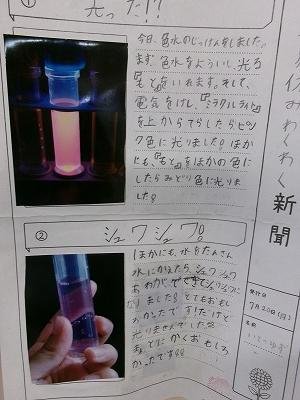 光った!?
①
今日、色水のじっけんをしました。
まず色水をようい し、光る
をいれます。そして、
電気をけし、『ミラクルライト』
を上からてらしたらピン
ク色に光りました!ほか
にも、をほかの色に
したらみどり色に光りま
した!
② シュワシュワ!
ほかにも、水をたんさん
水にかえたら、シュワシュワ
あわがでてきてシュワシュワに
なりました!とてもおもし
ろかったです!だけど
光りませんでした
とにかくおもしろ
かったです!!
わくわく
新聞
発行日
7月20日(月)
名前